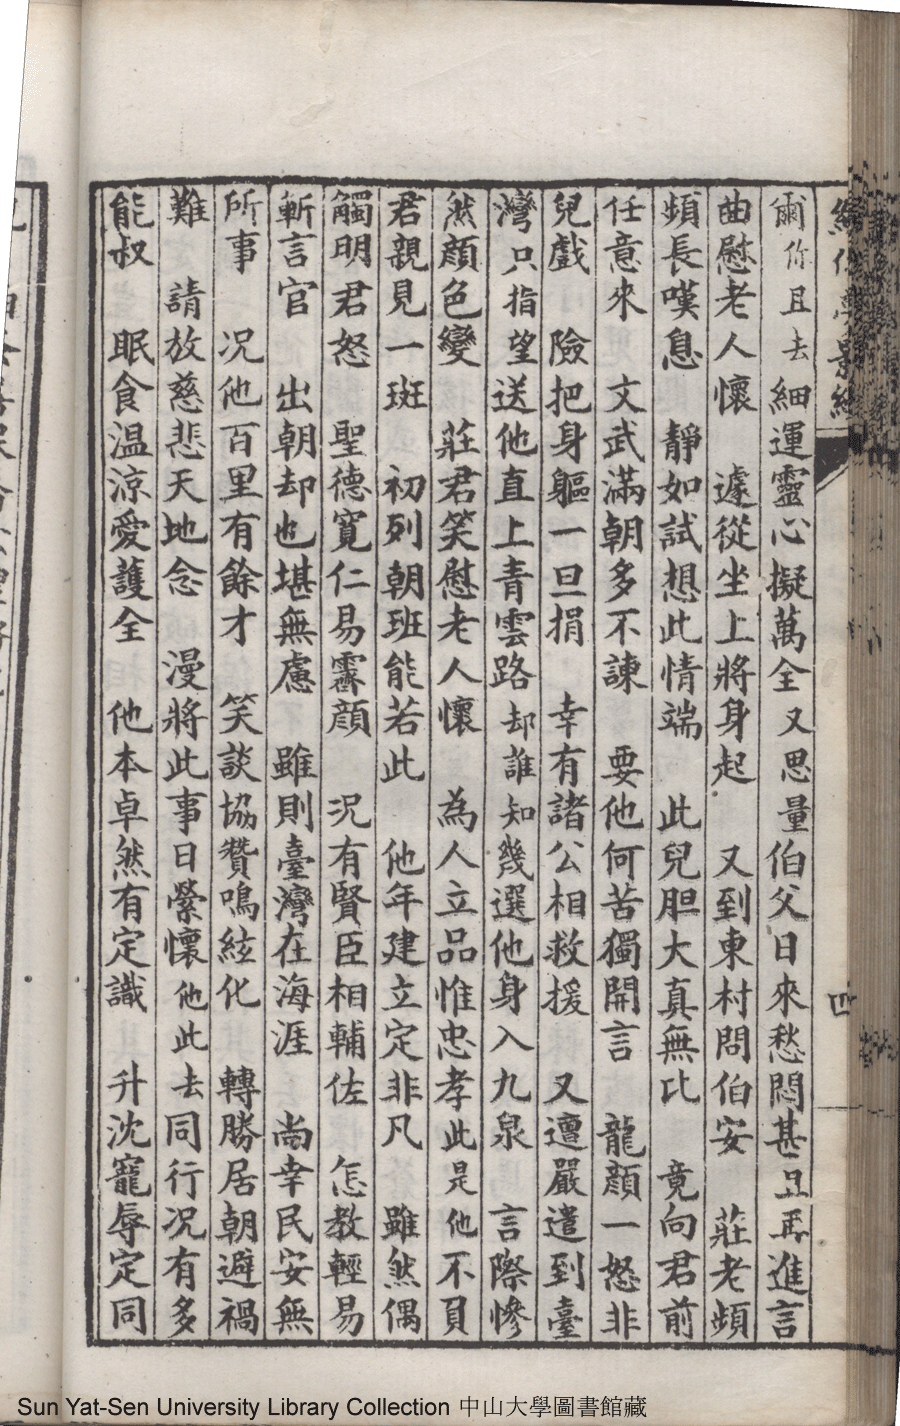 爾你且去細運靈心擬萬全 又思量伯父日來愁悶甚且再進言
曲慰老人懷 遽從坐上將身起 又到東村問伯安 莊老頻
頻長嘆息 靜如試想此情端 此兒胆大真無比 竟向君前
任意來 文武滿朝多不諫 要他何苦獨開言 龍顏一怒非
兒戲 險把身軀一旦捐 幸有諸公相救援 又遭嚴遣到臺
灣只指望送他直上青雲路 却誰知幾選他身入九泉 言際慘
然顏色變 莊君笑慰老人懷 為人立品惟忠孝此是他不負
君親見一斑 初列朝班能若此 他年建立定非凡 雖然偶
觸明君怒 聖德寬仁易霽顏 況有賢臣相輔佐 怎教輕易
斬言官 出朝却也堪無慮 雖則臺灣在海涯 尚幸民安無
所事 況他百里有餘才 笑談協贊鳴絃化 轉勝居朝避禍
難 請放慈悲天地念 漫將此事日縈懷他此去同行况有多
能叔 眠食温涼愛護全 他本卓然有定識 升沈寵辱定同
四
Sun Yat-Sen University Library Collection 中山大學圖書館藏